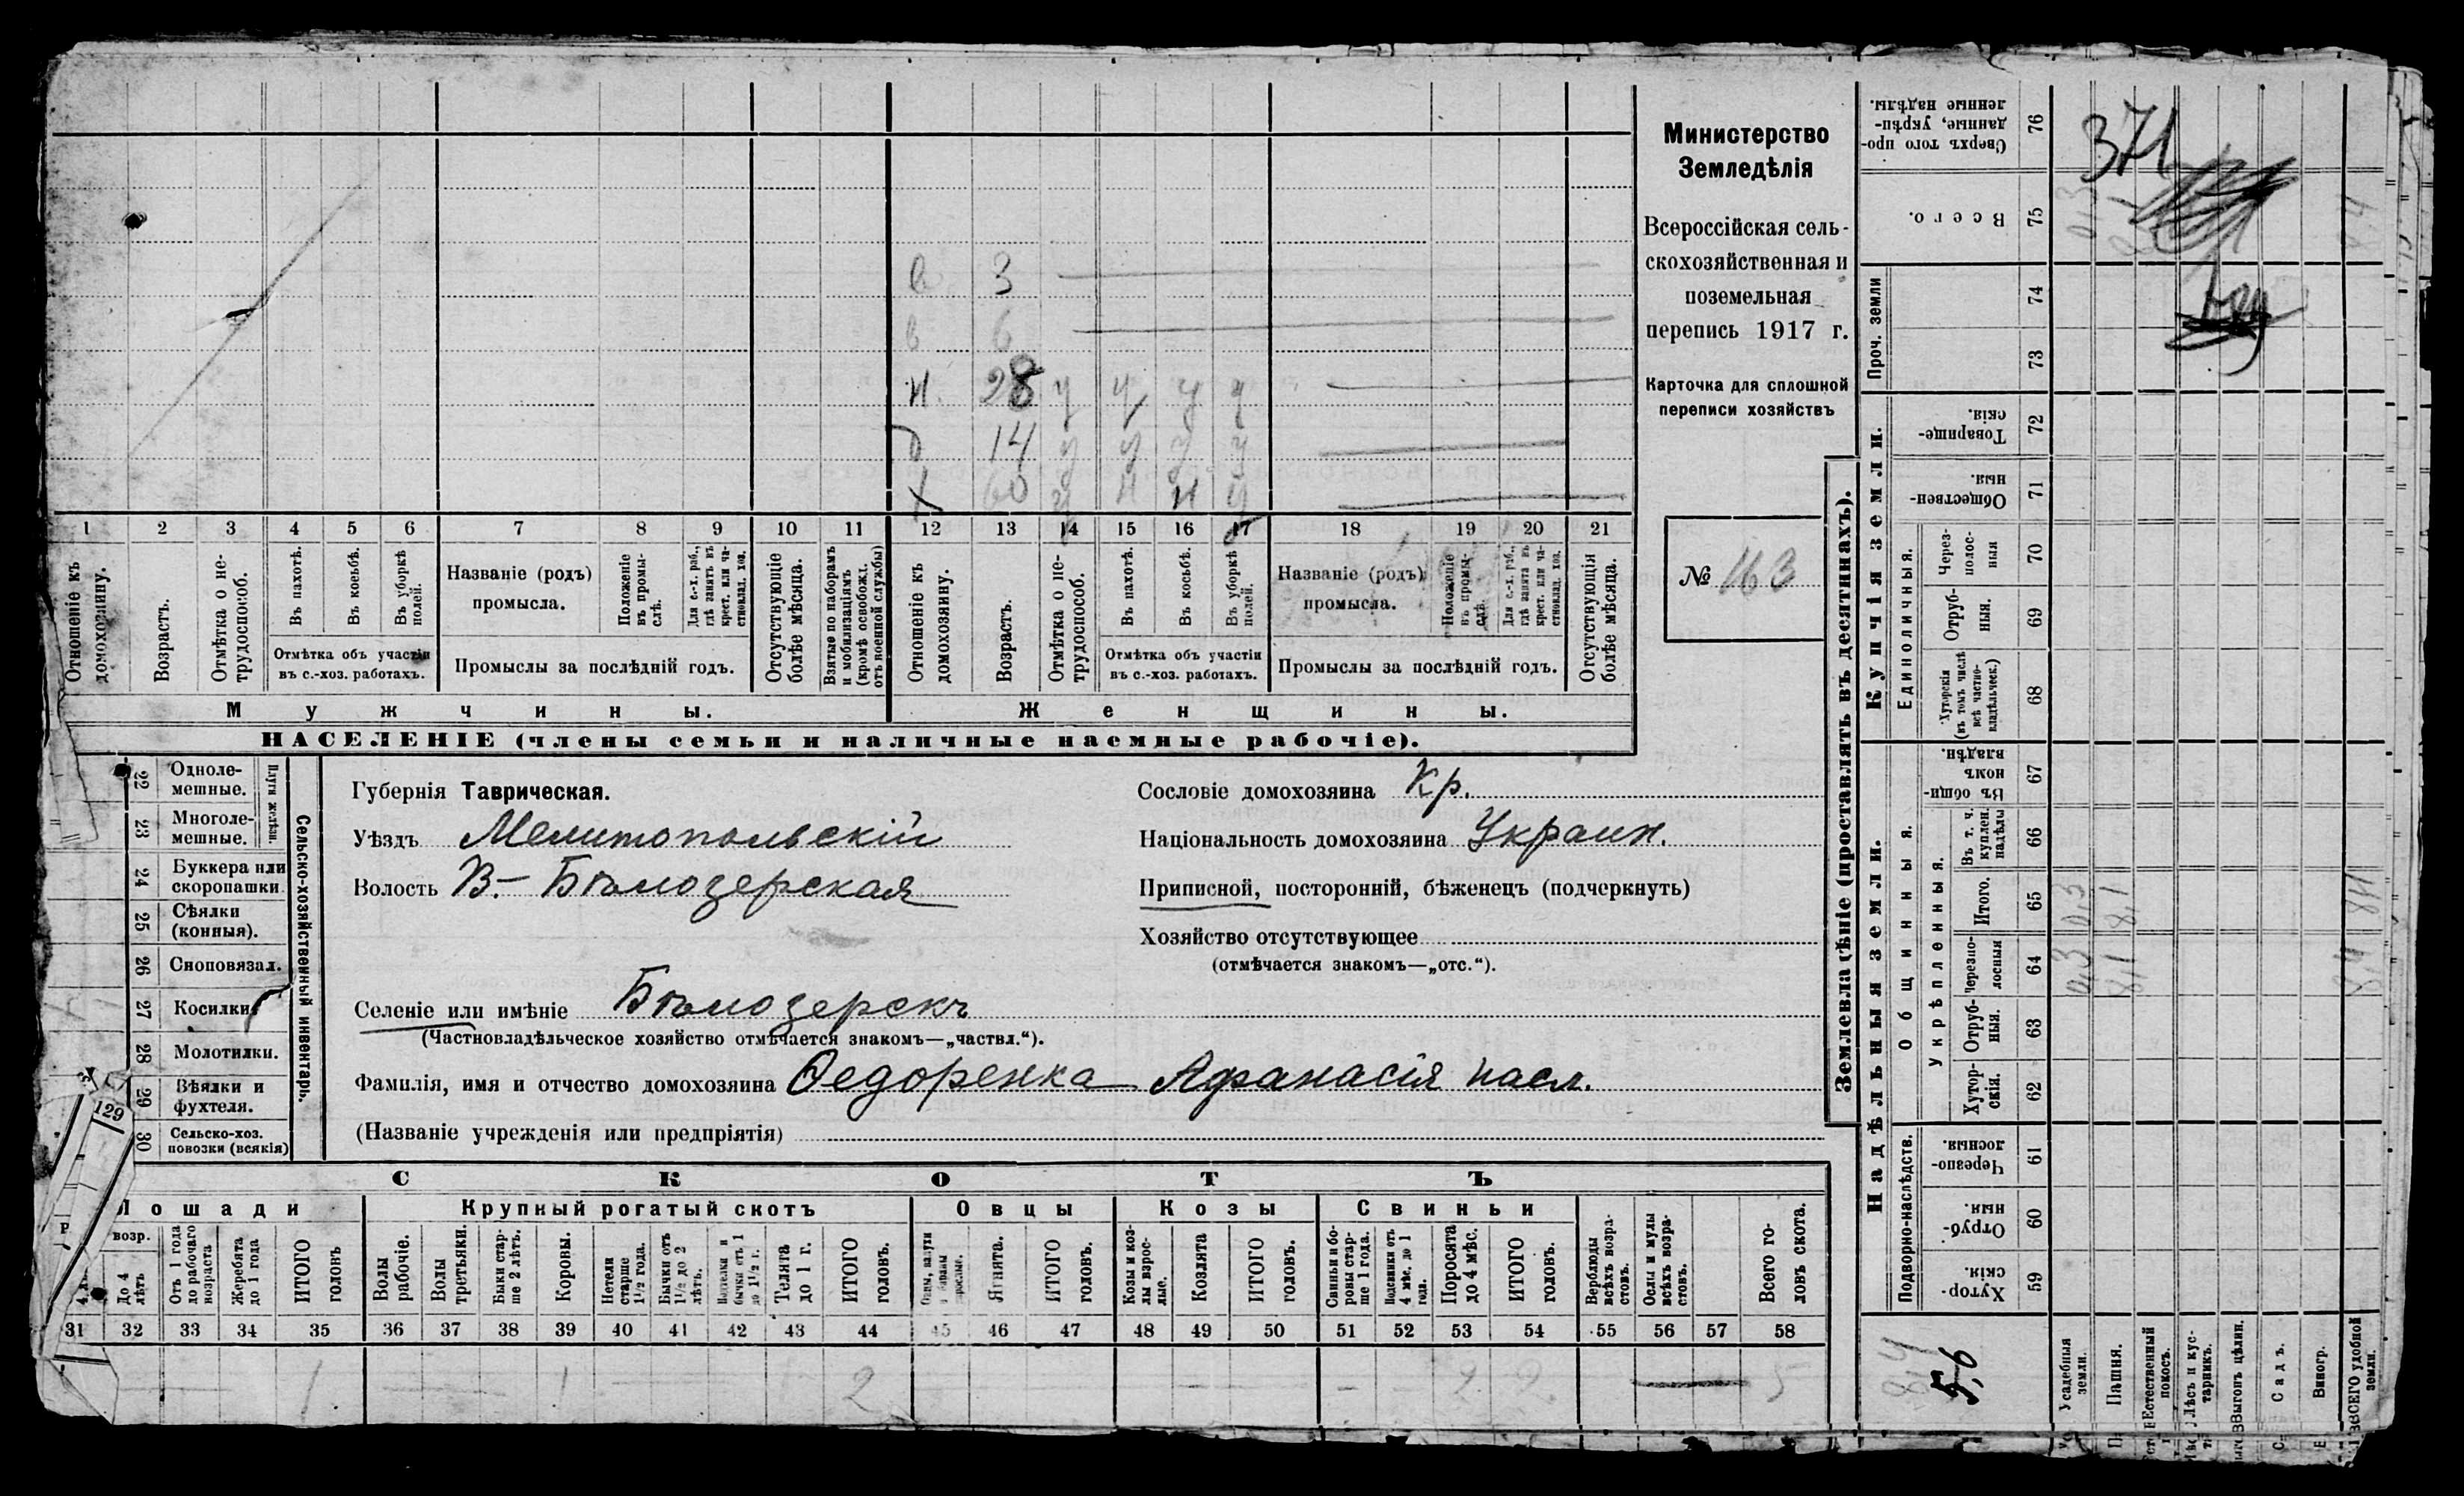 Министерство
Земледѣлія
Всероссійская сель-
скохозяйственная и
поземельная
перепись 1917 г.
Карточка для сплошной
переписи хозяйствъ
№ 163
в 3
в 6
н. 28 у у у у
д 14 у у у у
х 60 у н н у
1 2 3 4 5 6 7 8 9 10 11 12 13 14 15 16 17 18 19 20 21
Отношеніе къ домохозяину.
Возрастъ.
Отмѣтка о не-трудоспособ.
Въ пахотѣ.
Въ косьбѣ.
Въ уборкѣ полей.
Отмѣтка объ участіи
въ с.-хоз. работахъ.
Названіе (родъ)
промысла.
Положеніе въ промы-слѣ.
Для с.-х. раб., гдѣ занятъ въ крест. или ча-стновлад. хоз.
Промыслы за послѣдній годъ.
Отсутствующіе болѣе мѣсяца.
Взятые по наборамъ и мобилизаціямъ (кромѣ освобожд. отъ военной службы)
Отношеніе къ домохозяину.
Возрастъ.
Отмѣтка о не-трудоспособ.
Въ пахотѣ.
Въ косьбѣ.
Въ уборкѣ полей.
Отмѣтка объ участіи
въ с.-хоз. работахъ.
Названіе (родъ)
промысла.
Положеніе въ промы-слѣ.
Для с.-х. раб., гдѣ занята въ крест. или ча-стновлад. хоз.
Промыслы за послѣдній годъ.
Отсутствующія болѣе мѣсяца.
Мужчины.
Женщины.
НАСЕЛЕНІЕ (члены семьи и наличные наемные рабочіе).
22 Одноле-мешные.
23 Многоле-мешные.
Плуги желѣзн.
24 Буккера или скоропашки.
25 Сѣялки (конныя).
26 Сноповязал.
27 Косилки.
28 Молотилки.
29 Вѣялки и фухтеля.
30 Сельско-хоз. повозки (всякія)
Сельско-хозяйственный инвентарь.
129
Губернія Таврическая.
Уѣздъ Мелитопольскій
Волость В.-Бѣлозерская
Сословіе домохозяина Кр.
Національность домохозяина Украин.
Приписной, посторонній, бѣженецъ (подчеркнуть)
Хозяйство отсутствующее
(отмѣчается знакомъ—„отс.“).
Селеніе или имѣніе Бѣлозерскъ
(Частновладѣльческое хозяйство отмѣчается знакомъ—„частвл.“).
Фамилія, имя и отчество домохозяина Ѳедоренка Афанасія насл.
(Названіе учрежденія или предпріятія)
СКОТЪ
Лошади
Крупный рогатый скотъ
Овцы
Козы
Свиньи
возр.
До 4 лѣтъ
Отъ 1 года до рабочаго возраста
Жеребята до 1 года
ИТОГО головъ
Волы рабочіе.
Волы третьяки.
Быки стар-ше 2 лѣтъ.
Коровы.
Нетели старше 1½ года.
Бычки отъ 1½ до 2 лѣтъ.
бычки отъ 1 до 1½ г.
Телята до 1 г.
ИТОГО головъ.
Ягнята.
ИТОГО головъ.
Козы и коз-лы взрос-лые.
Козлята
ИТОГО головъ.
Свиньи и бо-ровы стар-ше 1 года.
Подсвинки отъ 4 мѣс. до 1 года.
Поросята до 4 мѣс.
ИТОГО головъ.
Верблюды всѣхъ возра-стовъ.
Ослы и мулы всѣхъ возра-стовъ.
Всего го-ловъ скота.
31 32 33 34 35 36 37 38 39 40 41 42 43 44 45 46 47 48 49 50 51 52 53 54 55 56 57 58
1 1 2 2 2 5
Землевладѣніе (проставлять въ десятинахъ).
Купчія земли.
Надѣльныя земли.
Проч. земли
Единоличныя.
Общинныя.
Укрѣпленныя.
Подворно-наслѣдств.
76 Сверхъ того про-данные, укрѣп-ленные надѣлы.
75 Всего.
74
73
72 Товарище-скія.
71 Обществен-ныя.
70 Через-полос-ныя
69 Отруб-ныя.
68 Хуторскія (въ томъ числѣ всѣ частно-владѣльческ.)
67 Въ общи-номъ владѣн.
66 Въ т. ч. куплен. надѣлы
65 Итого.
64 Черезпо-лосныя
63 Отруб-ныя.
62 Хутор-скія.
61 Черезпо-лосныя.
60 Отруб-ныя.
59 Хутор-скія.
371
0,3 8,1 8,4
0,3 8,1 8,4
0,3 8,4
8,4
5,6
Усадебныя земли.
Пашня.
Естественный покосъ.
Лѣсъ и кус-тарникъ.
Выгонъ цѣлин.
Садъ.
Виногр.
ВСЕГО удобной земли.